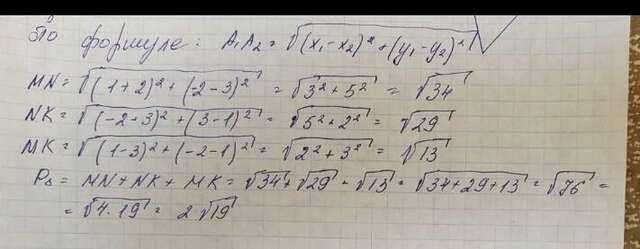 по формуле: A₁A₂ = √((x₁-x₂)² + (y₁-y₂)²)
MN = √((1+2)² + (-2-3)²) = √(3²+5²) = √34
NK = √((-2+3)² + (3-1)²) = √(5²+2²) = √29
MK = √((1-3)² + (-2-1)²) = √(2²+3²) = √13
P△ = MN + NK + MK = √34 + √29 + √13 = √(34+29+13) = √76 =
= √(4·19) = 2√19